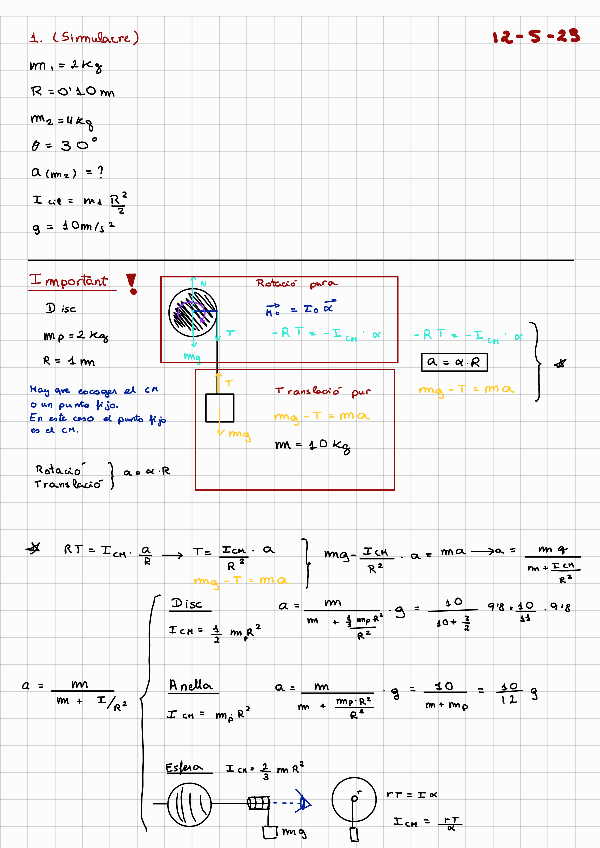 1. (Simulacre)
12-5-23
m₁ = 2 Kg
R = 0'10 m
m₂ = 4 Kg
θ = 30°
a (m₂) = ?
I cil = m₁ R²/2
g = 10 m/s²
Important !
Disc
m_p = 2 Kg
R = 1 m
Hay que escoger el CM
o un punto fijo.
En este caso el punto fijo
es el CM.
Rotació
Translació } a = α·R
Rotació pura
N
M⃗₀ = I₀ α⃗
T
-RT = -I_CM · α
mg
T
mg
Translació pur
mg - T = ma
m = 10 Kg
-RT = -I_CM · α
a = α·R
mg - T = ma
RT = I_CM · a/R → T = I_CM/R² · a
mg - T = ma
mg - I_CM/R² · a = ma → a = mg/(m + I_CM/R²)
a = m/(m + I/R²)
Disc
I_CM = 1/2 m_p R²
a = m/(m + (1/2 m_p R²)/R²) · g = 10/(10 + 2/2) 9'8 = 10/11 · 9'8
Anella
I_CM = m_p R²
a = m/(m + m_p·R²/R²) · g = 10/(m + m_p) = 10/12 g
Esfera I_CM = 2/3 m R²
mg
r
rT = Iα
I_CM = rT/α